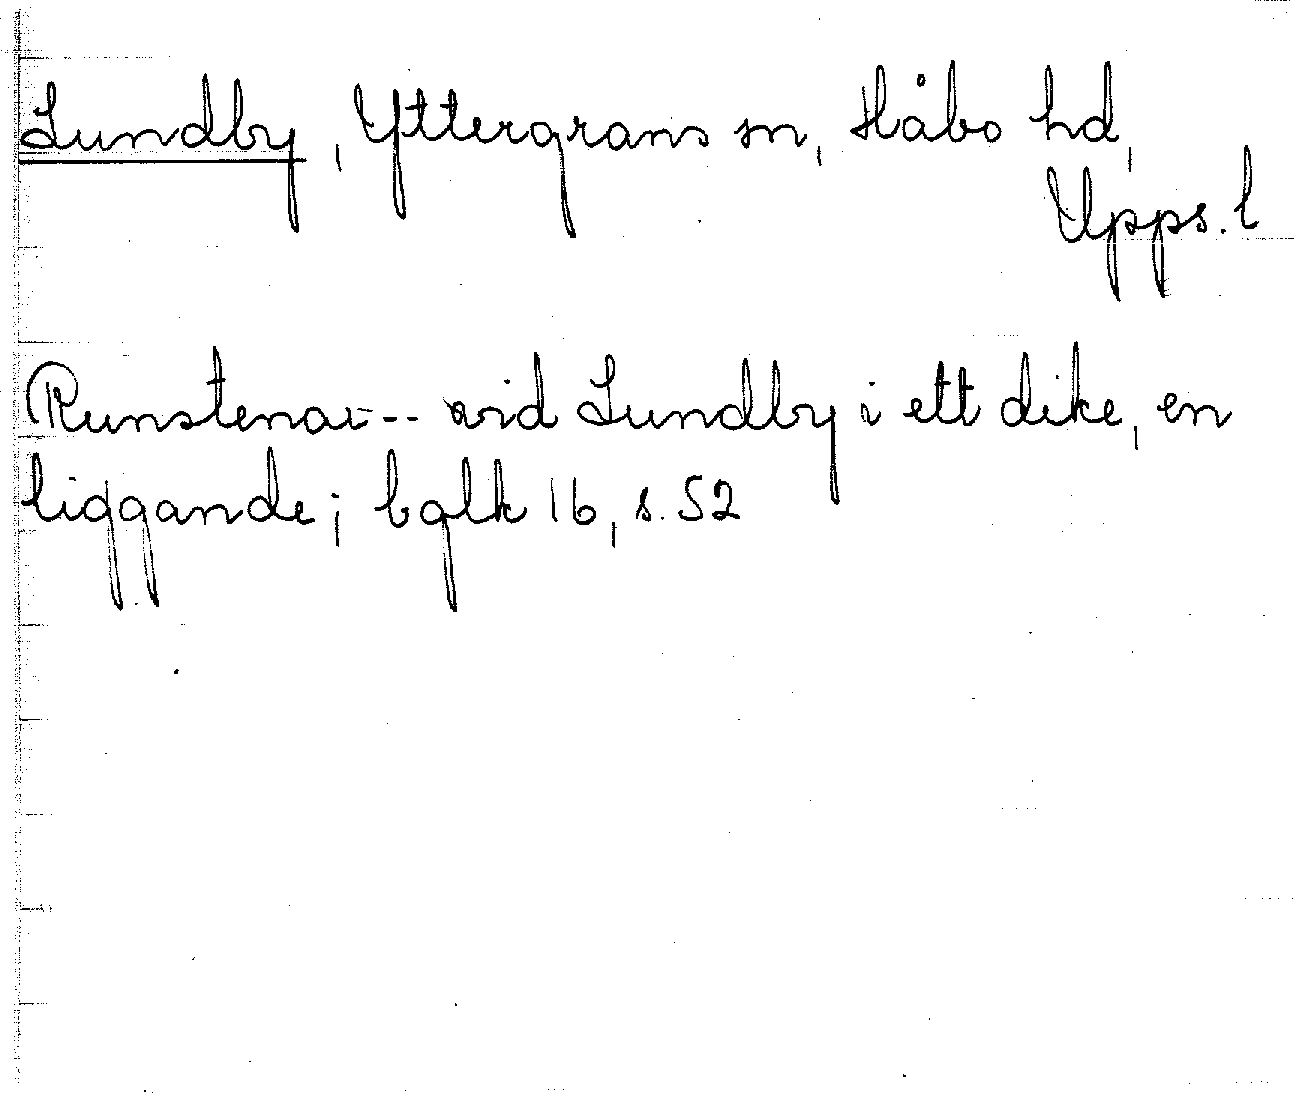 Lundby, Yttergrans sn, Håbo hd,
Upps. l
Runstenar -- vid Lundby i ett dike, en
liggande; bglk 16, s. 52